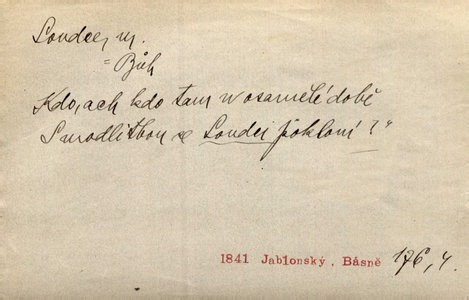 Soudce, m.
= Bůh
Kdo, ach kdo tam w osamělé době
S modlitbou se Soudci pokloní ?"
1841 Jablonský. Básně 176, 4.